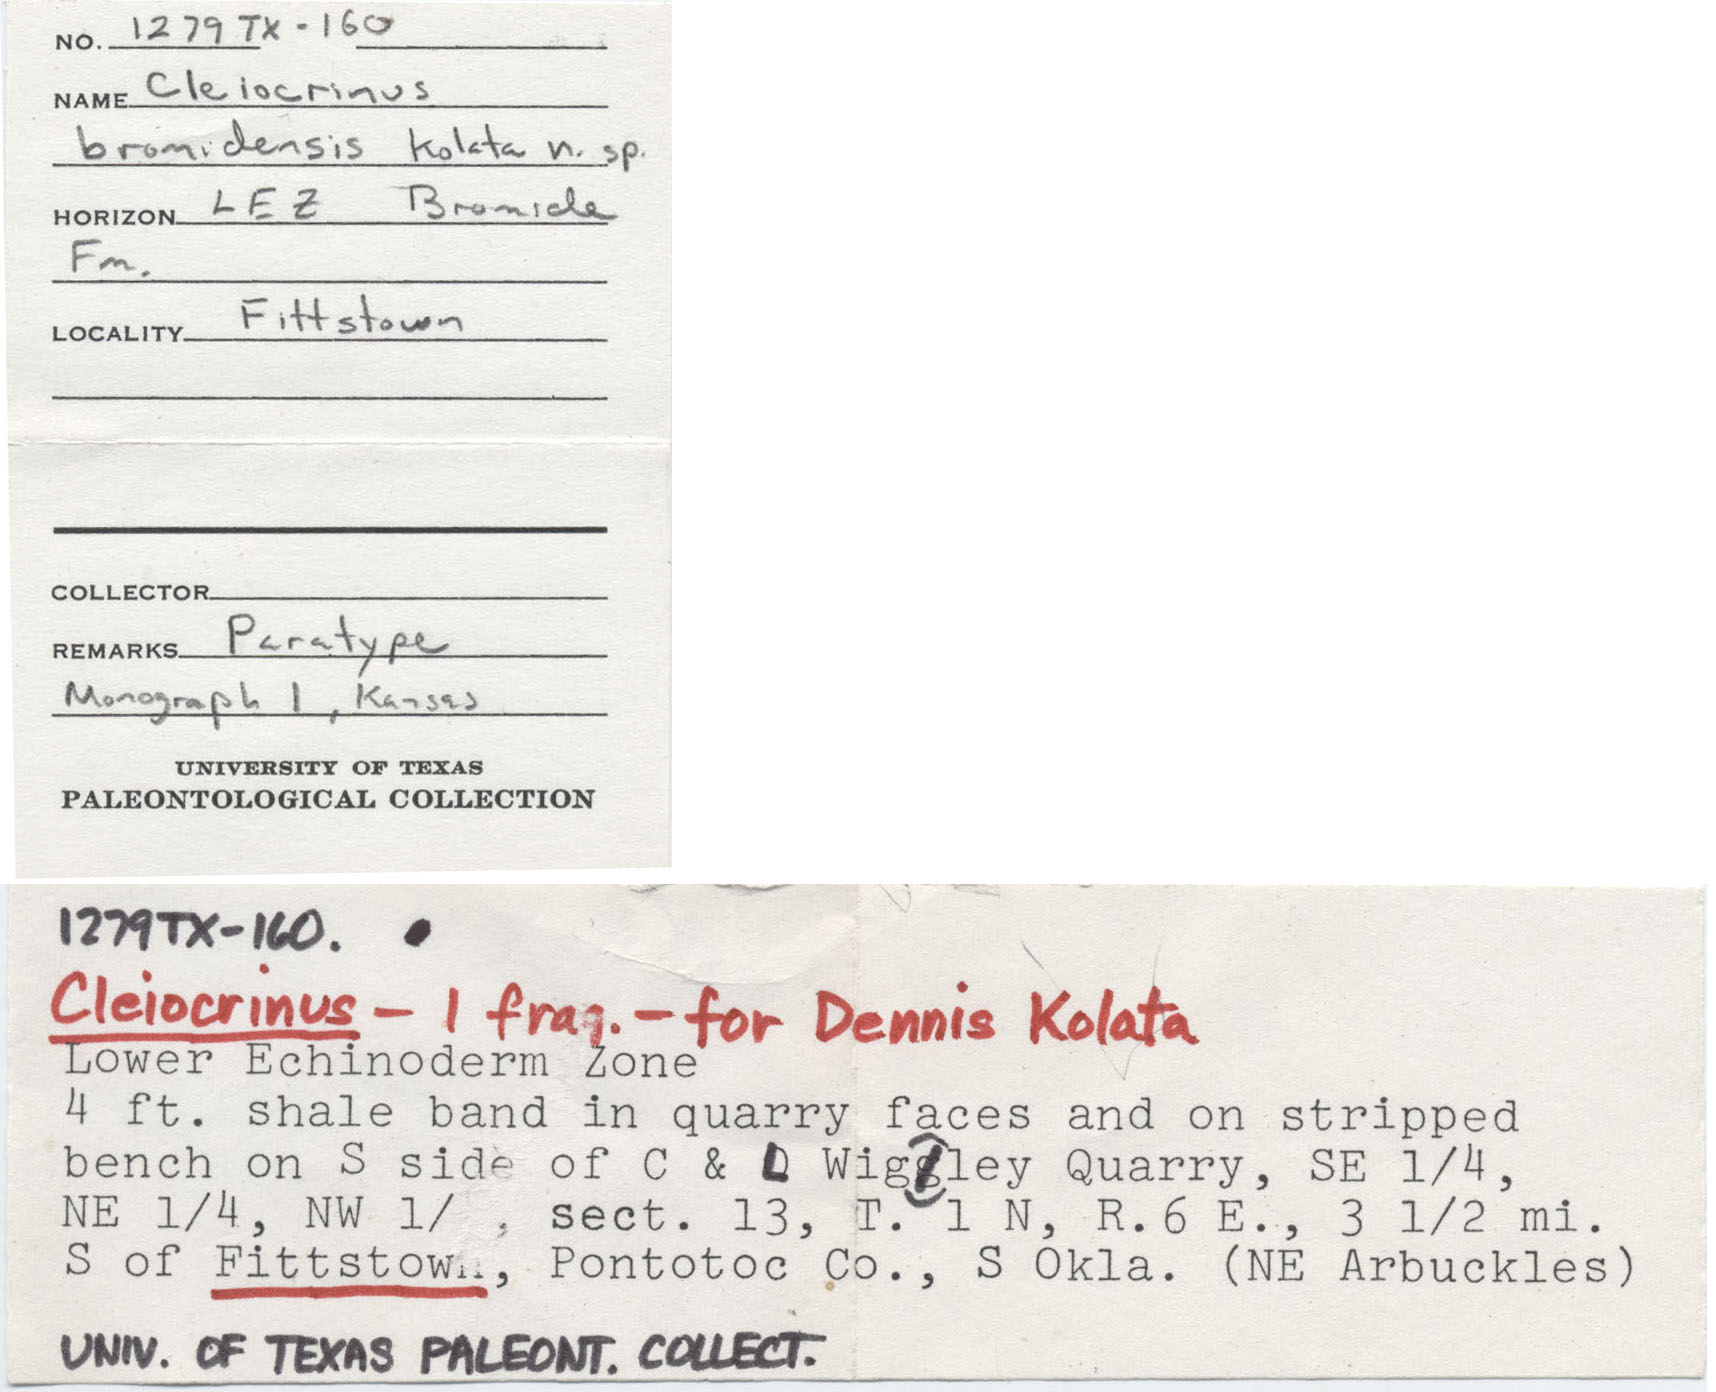 NO. 1279TX-160
NAME Cleiocrinus
bromidensis Kolata n. sp.
HORIZON LEZ Bromide
Fm.
LOCALITY Fittstown
COLLECTOR
REMARKS Paratype
Monograph 1, Kansas
UNIVERSITY OF TEXAS
PALEONTOLOGICAL COLLECTION
1279TX-160.
Cleiocrinus - 1 frag. - for Dennis Kolata
Lower Echinoderm Zone
4 ft. shale band in quarry faces and on stripped
bench on S side of C & L Wigley Quarry, SE 1/4,
NE 1/4, NW 1/ , sect. 13, T. 1 N, R.6 E., 3 1/2 mi.
S of Fittstown, Pontotoc Co., S Okla. (NE Arbuckles)
UNIV. OF TEXAS PALEONT. COLLECT.